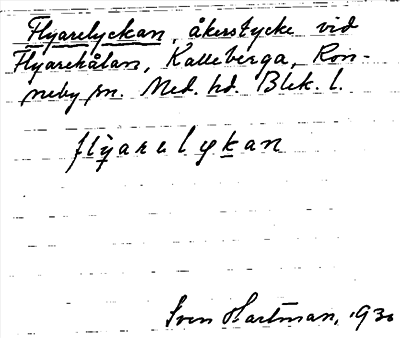 Flyarelyckan, åkerstycke vid
Flyarekåtan, Kalleberga, Ron-
neby sn. Med. hd. Blek. l.
flyarelykan
Sven Hartman, 1930